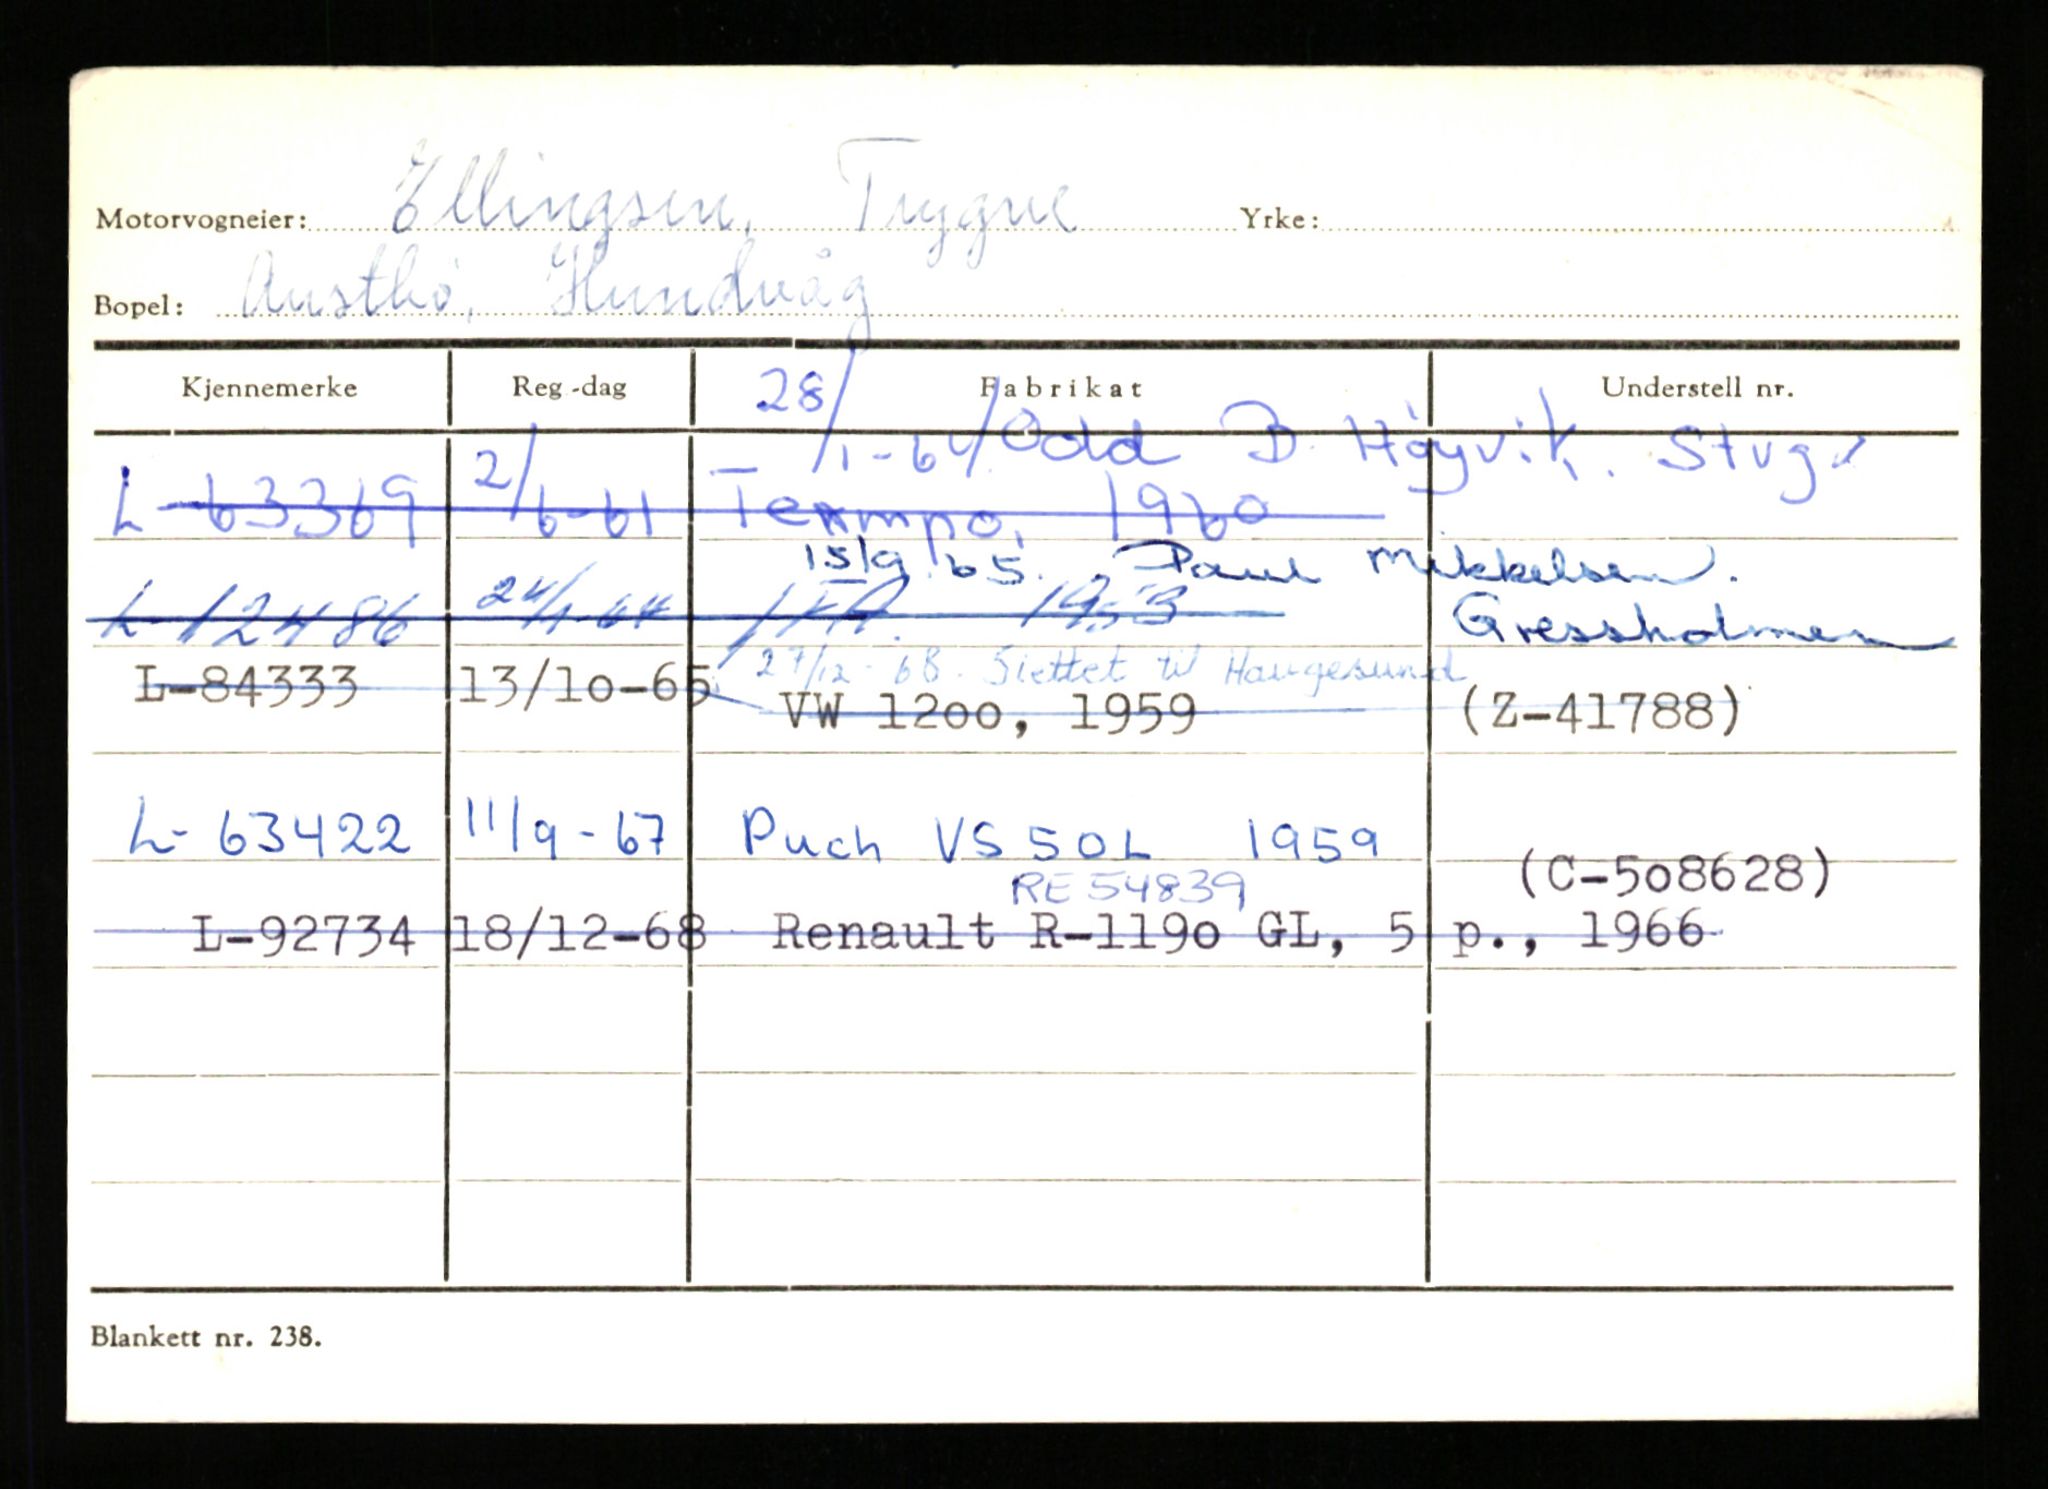 Motorvogneier: Ellingsen, Trygve Yrke:
Bopel: Austbø, Hundvåg
Kjennemerke Reg.-dag Fabrikat Understell nr.
28/1-64 Odd B. Høyvik. Stvgr
L-63369 2/6-61 Tempo, 1960
15/9.65. Paul Mikkelsen.
L-12486 24/1-64 1953 Gressholmen
27/12-68. Slettet til Haugesund
L-84333 13/10-65 VW 1200, 1959 (Z-41788)
L-63422 11/9-67 Puch VS 50L 1959
(C-508628)
RE 54839
L-92734 18/12-68 Renault R-1190 GL, 5 p., 1966
Blankett nr. 238.